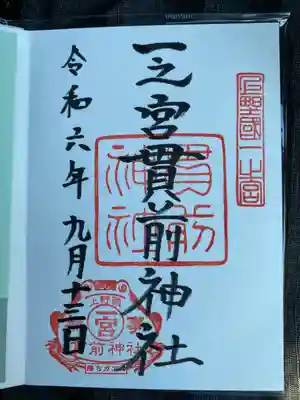 上野國一之宮
一之宮貫前神社
貫前神社
令和六年九月十三日
上野國
一宮
貫前神社